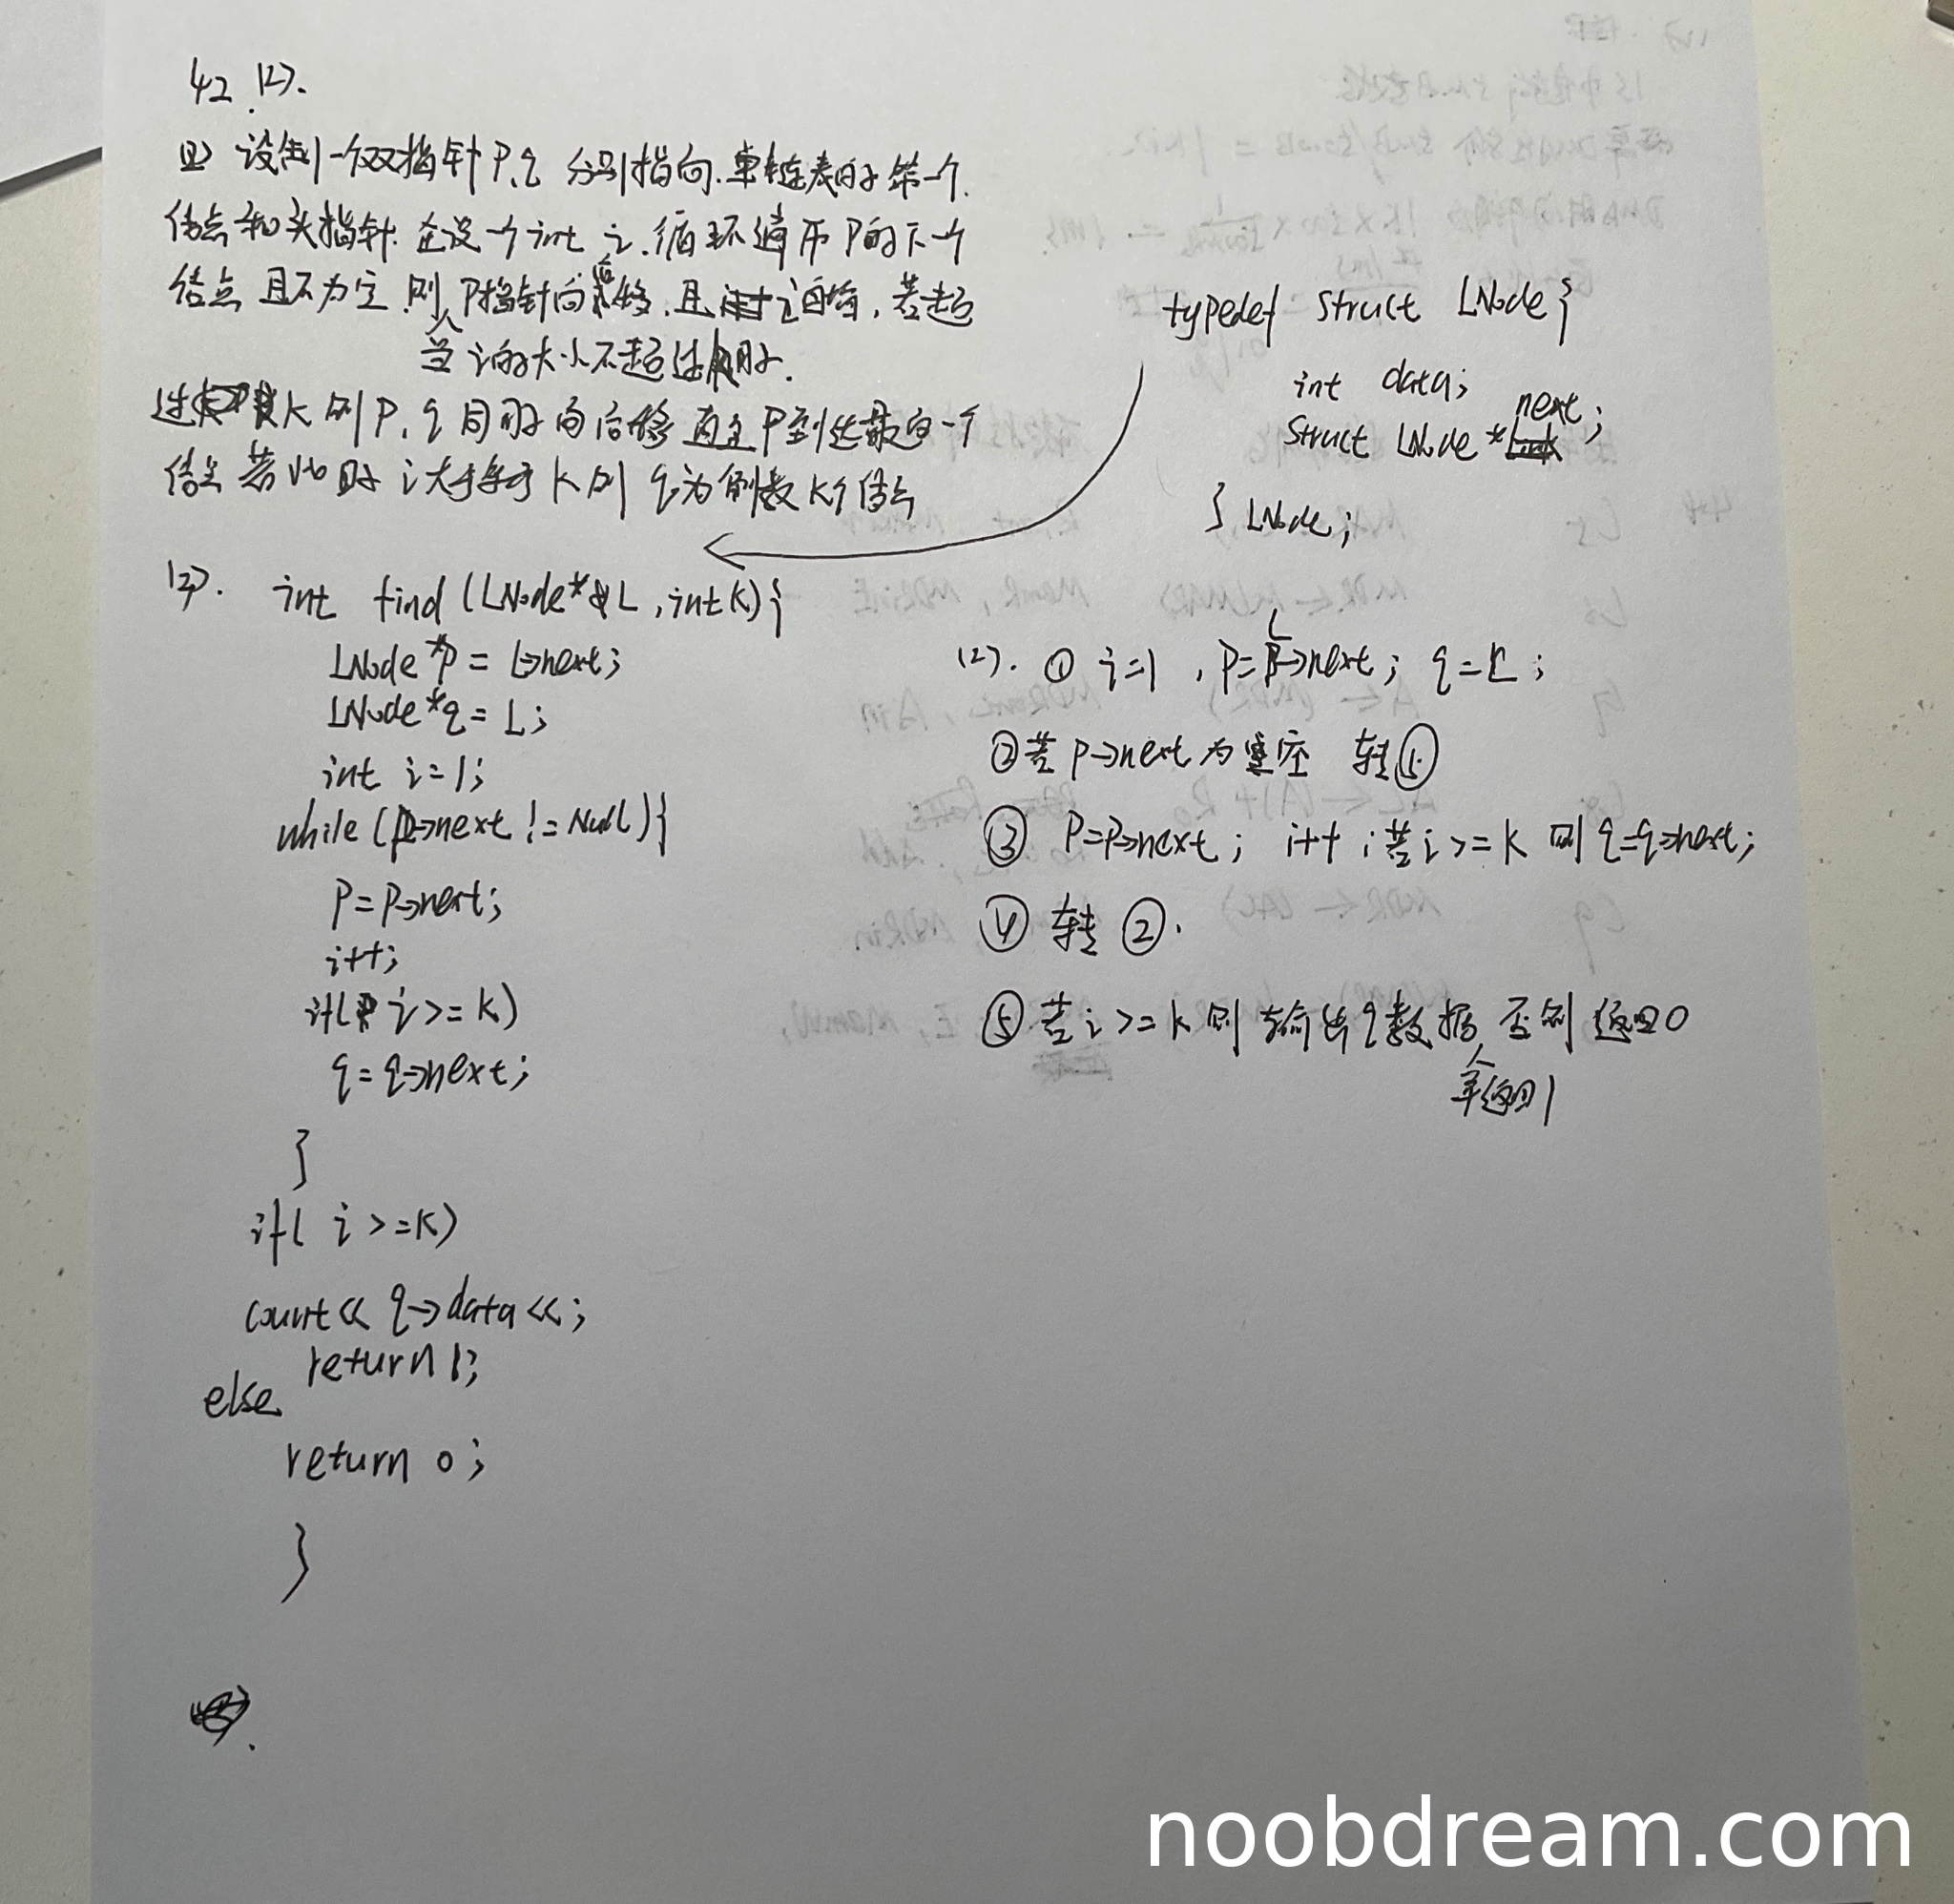 42 (2).
(1) 设制一个双指针P、q 分别指向.单链表的第一个.
结点和头指针. 在设一个int i. 循环遍历P的下一个
结点 且不为空 则 P指针向后移. 且 i自增, 若超
当i的大小不超过k时.
过 K 则P、q同时向后移 直至P到达最后一个
结点 若此时 i大于等于 K 则 q为倒数K个结点
typedef struct LNode{
int data;
struct LNode *next;
} LNode;
(3). int find (LNode*&L, int K){
LNode *p = L->next;
LNode *q = L;
int i=1;
while (p->next != Null){
P=P->next;
i++;
if( i >= K)
q = q->next;
}
if( i >=K)
count<< q->data <<;
return 1;
else
return 0;
}
(2). ① i=1 , P=L->next; q=L;
②若 P->next 为空 转⑤
③ P=P->next; i++ ;若i>=K 则 q=q->next;
④ 转 ②.
⑤ 若i>=k 则 输出q数据 否则 返回0
并返回1
noobdream.com